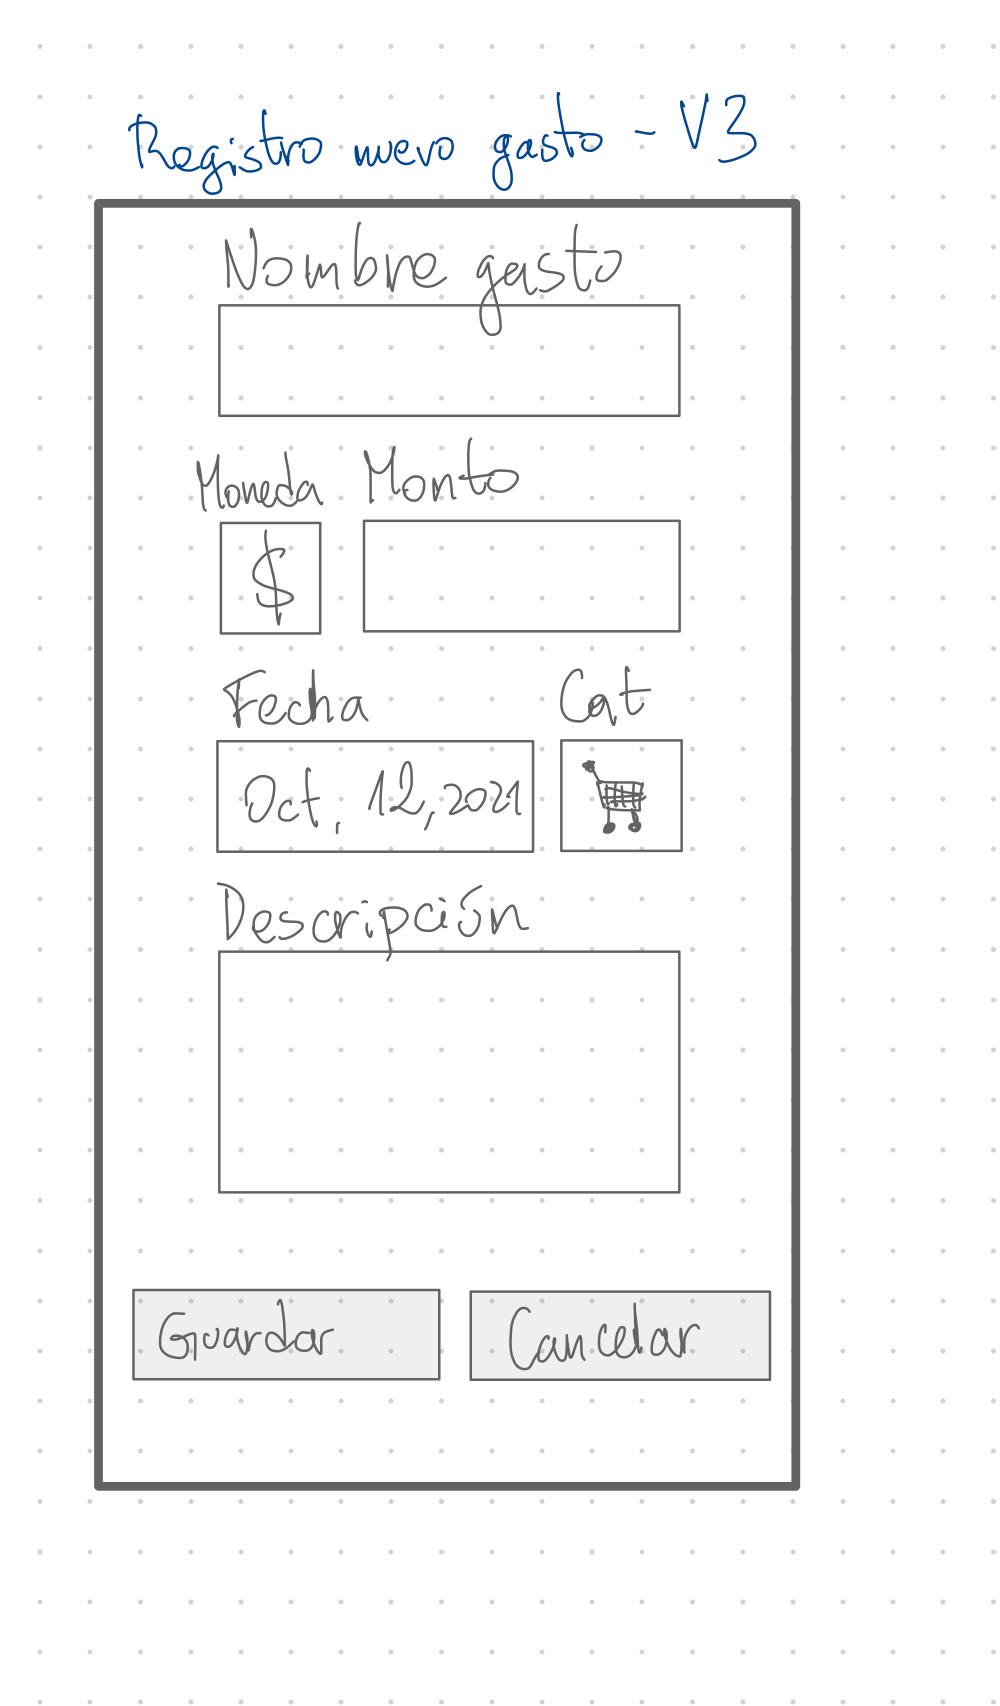 Registro nuevo gasto - V3
Nombre gasto
Moneda Monto
$
Fecha Cat
Oct, 12, 2021
Descripción
Guardar Cancelar